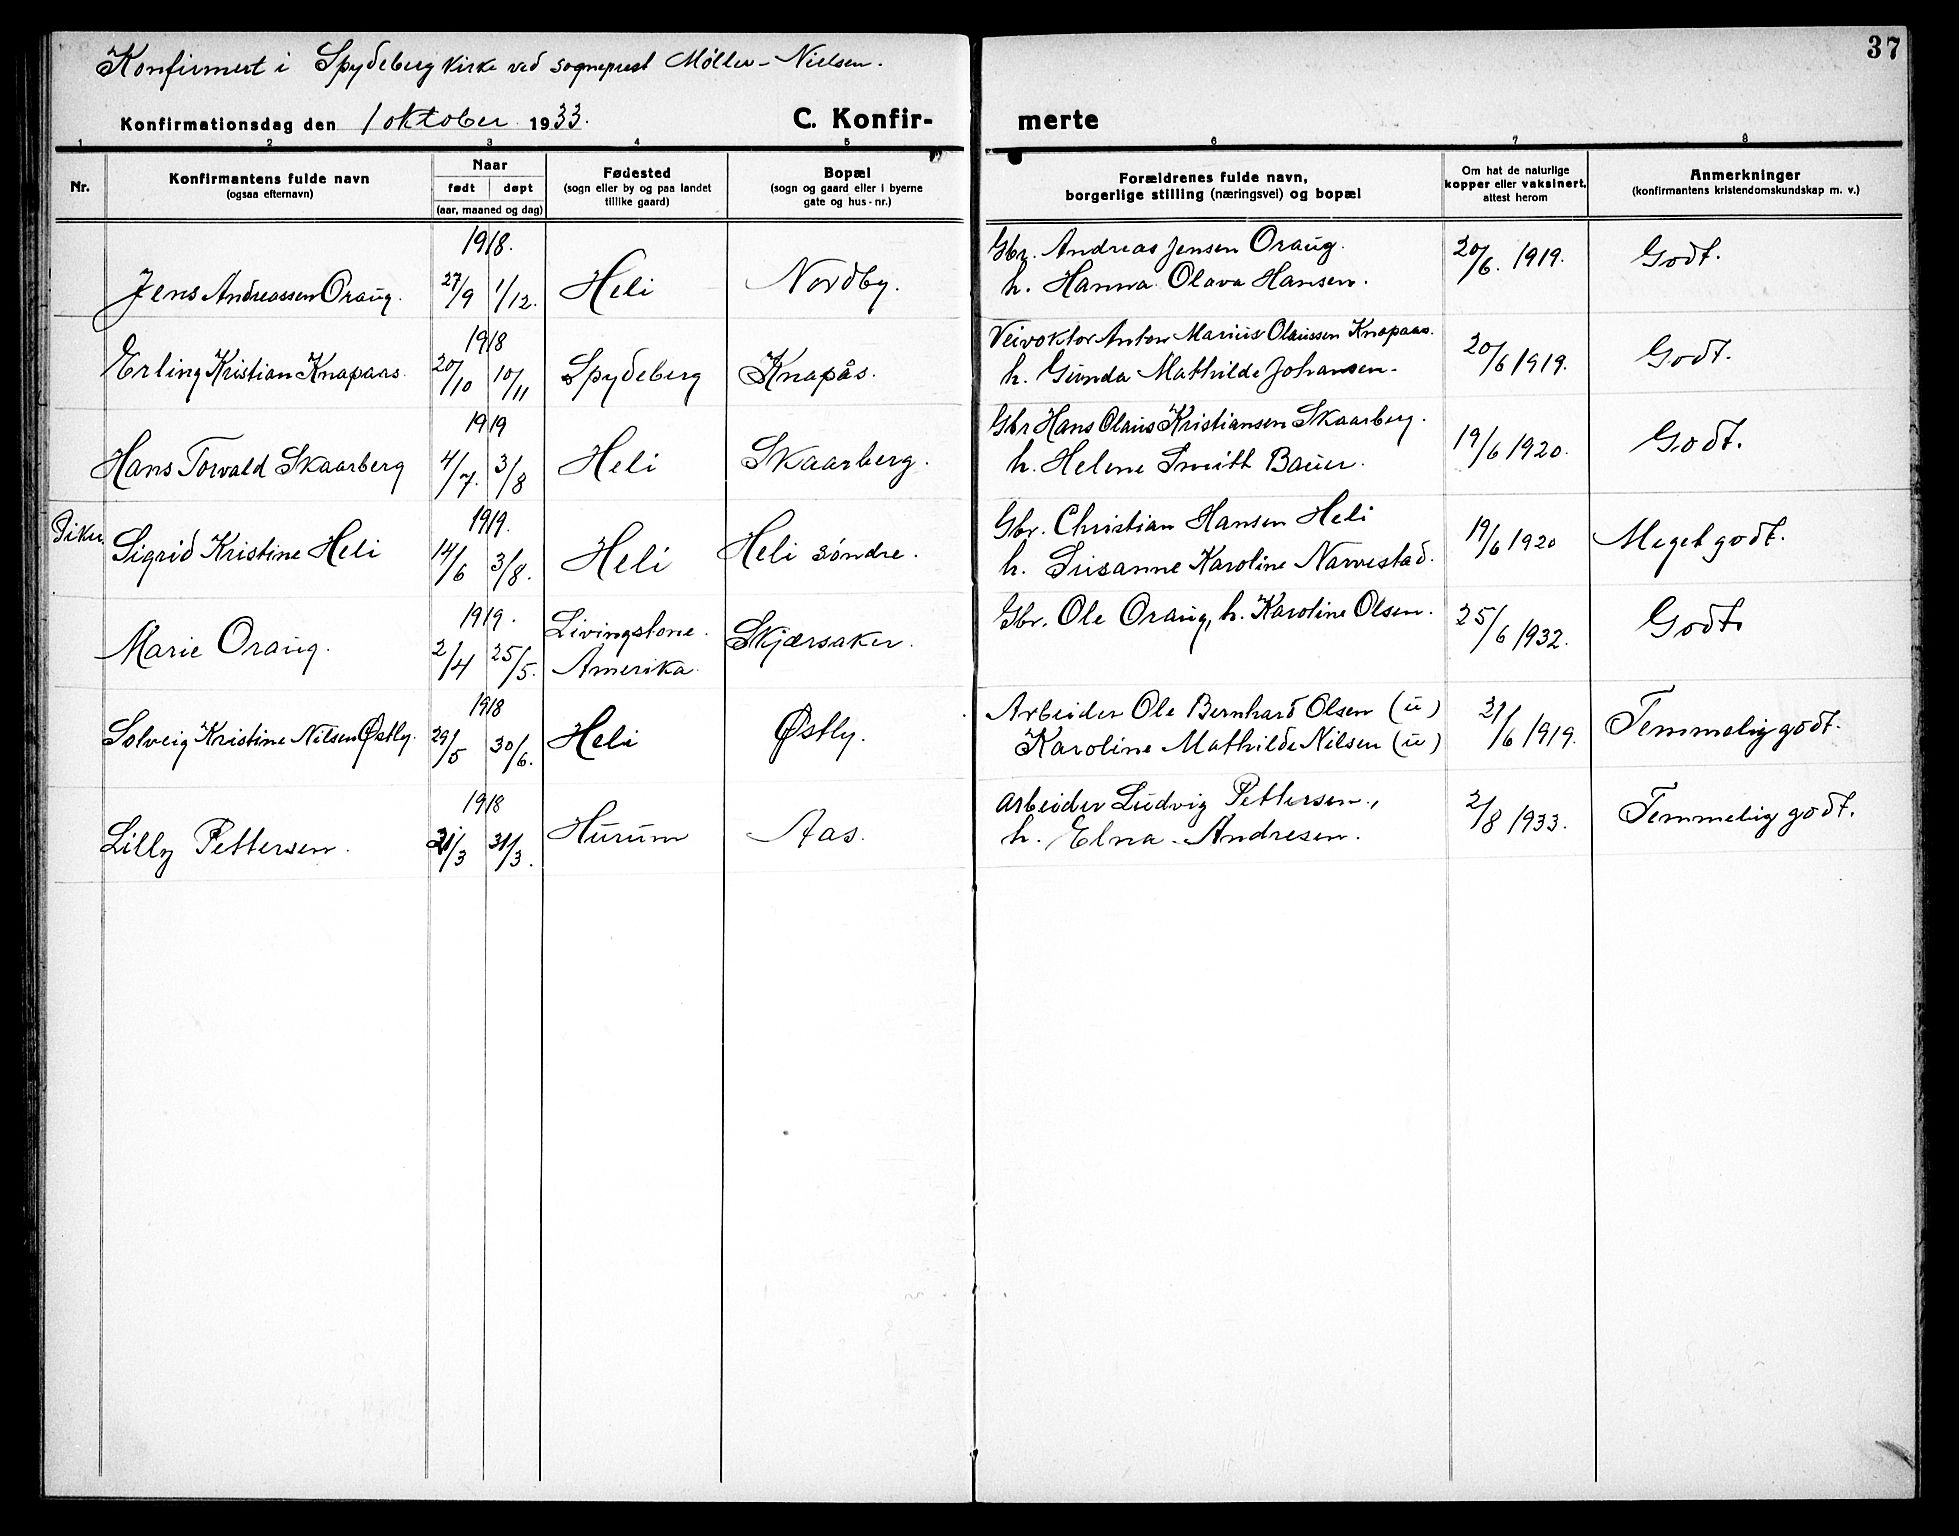 37
Konfirmert i Spydeberg kirke ved sogneprest Møller-Nielsen.
Konfirmationsdag den 1 oktober 1933.
C. Konfir- merte
1 2 3 4 5 6 7 8
Nr.
Konfirmantens fulde navn
(ogsaa efternavn)
Naar
født døpt
(aar, maaned og dag)
Fødested
(sogn eller by og paa landet
tillike gaard)
Bopæl
(sogn og gaard eller i byerne
gate og hus-nr.)
Forældrenes fulde navn,
borgerlige stilling (næringsvei) og bopæl
Om hat de naturlige
kopper eller vaksinert,
attest herom
Anmerkninger
(konfirmantens kristendomskundskap m. v.)
1918.
Jens Andreassen Oraug. 27/9 1/12. Heli Nordby.
Gbr. Andreas Jensen Oraug.
h. Hanna Olava Hansen.
20/6. 1919. Godt.
1918
Erling Kristian Knapaas. 20/10 10/11 Spydeberg Knapås.
Veivokter Anton Marius Olaussen Knapaas.
h. Gunda Mathilde Johansen.
20/6 1919. Godt.
1919
Hans Torvald Skaarberg 4/7. 3/8 Heli Skaarberg.
Gbr Hans Olaus Kristiansen Skaarberg.
h. Helene Smith Bauer.
19/6 1920. Godt.
Piker
1919.
Sigrid Kristine Heli 14/6 3/8. Heli Heli søndre.
Gbr. Christian Hansen Heli
h. Susanne Karoline Narvestad.
19/6 1920 Meget godt.
1919.
Marie Oraug. 2/4 25/5. Livingstone.
Amerika. Skjærsaker.
Gbr. Ole Oraug, h. Karoline Olsen.
25/6 1932. Godt.
1918
Solveig Kristine Nilsen Østby. 29/5 30/6. Heli Østby.
Arbeider Ole Bernhard Olsen (u)
Karoline Mathilde Nilsen (u)
21/6 1919. Temmelig godt.
1918
Lilly Pettersen. 31/3 31/3. Hurum Aas.
Arbeider Ludvig Pettersen,
h. Elna Andresen.
2/8 1933. Temmelig godt.